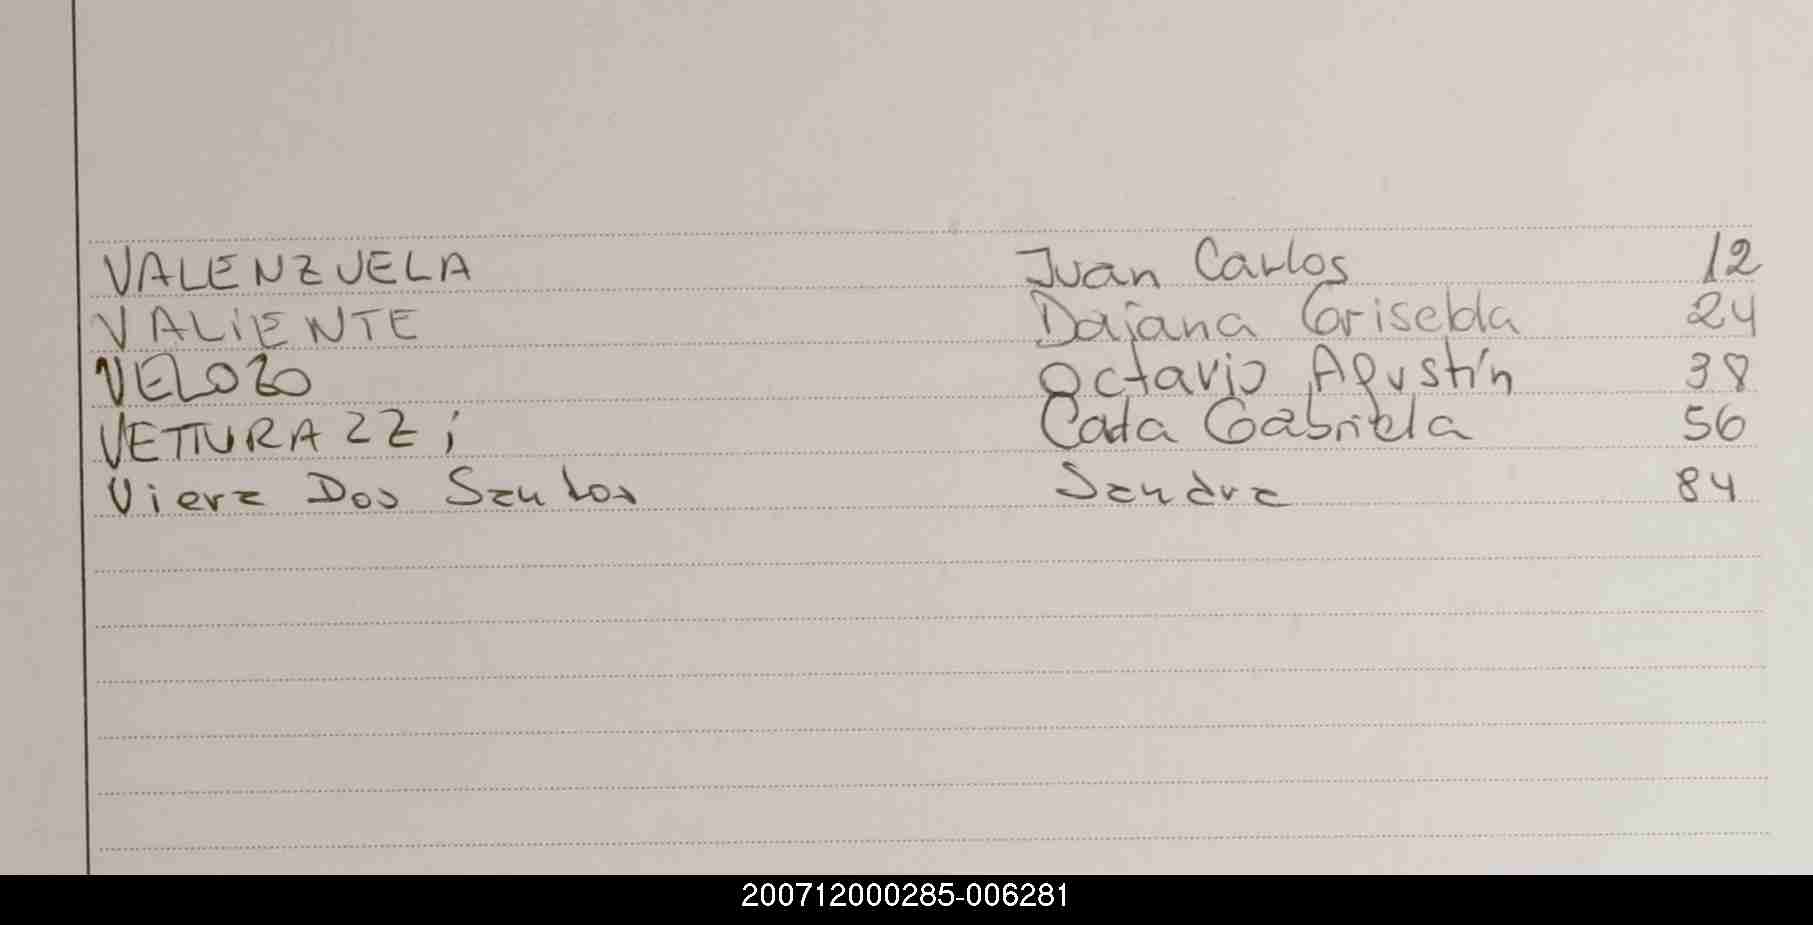 VALENZUELA Juan Carlos 12
VALiENTE Daiana Griselda 24
VELOZO Octavio Agustín 38
VETTURAZZi Gabriela 56
Viera Dos Santos Sandra 84
200712000285-006281